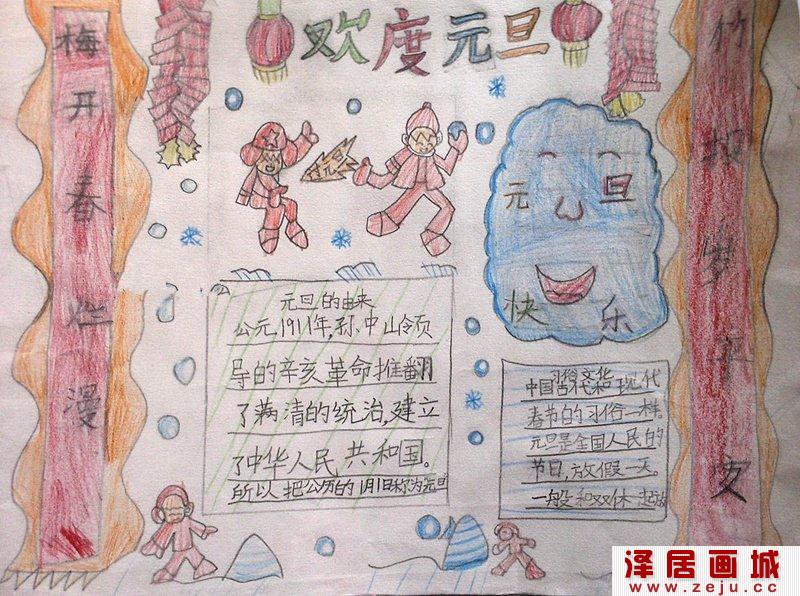 欢度元旦
梅开春烂漫
竹报岁平安
元旦
元旦
快乐
元旦的由来
公元1911年,孙中山领
导的辛亥革命推翻
了满清的统治,建立
了中华人民共和国。
所以把公历的1月1日称为元旦
习俗文化
中国古代和现代
春节的习俗一样。
元旦是全国人民的
节日,放假一天。
一般和双休一起放
泽居画城
www.zeju.cc